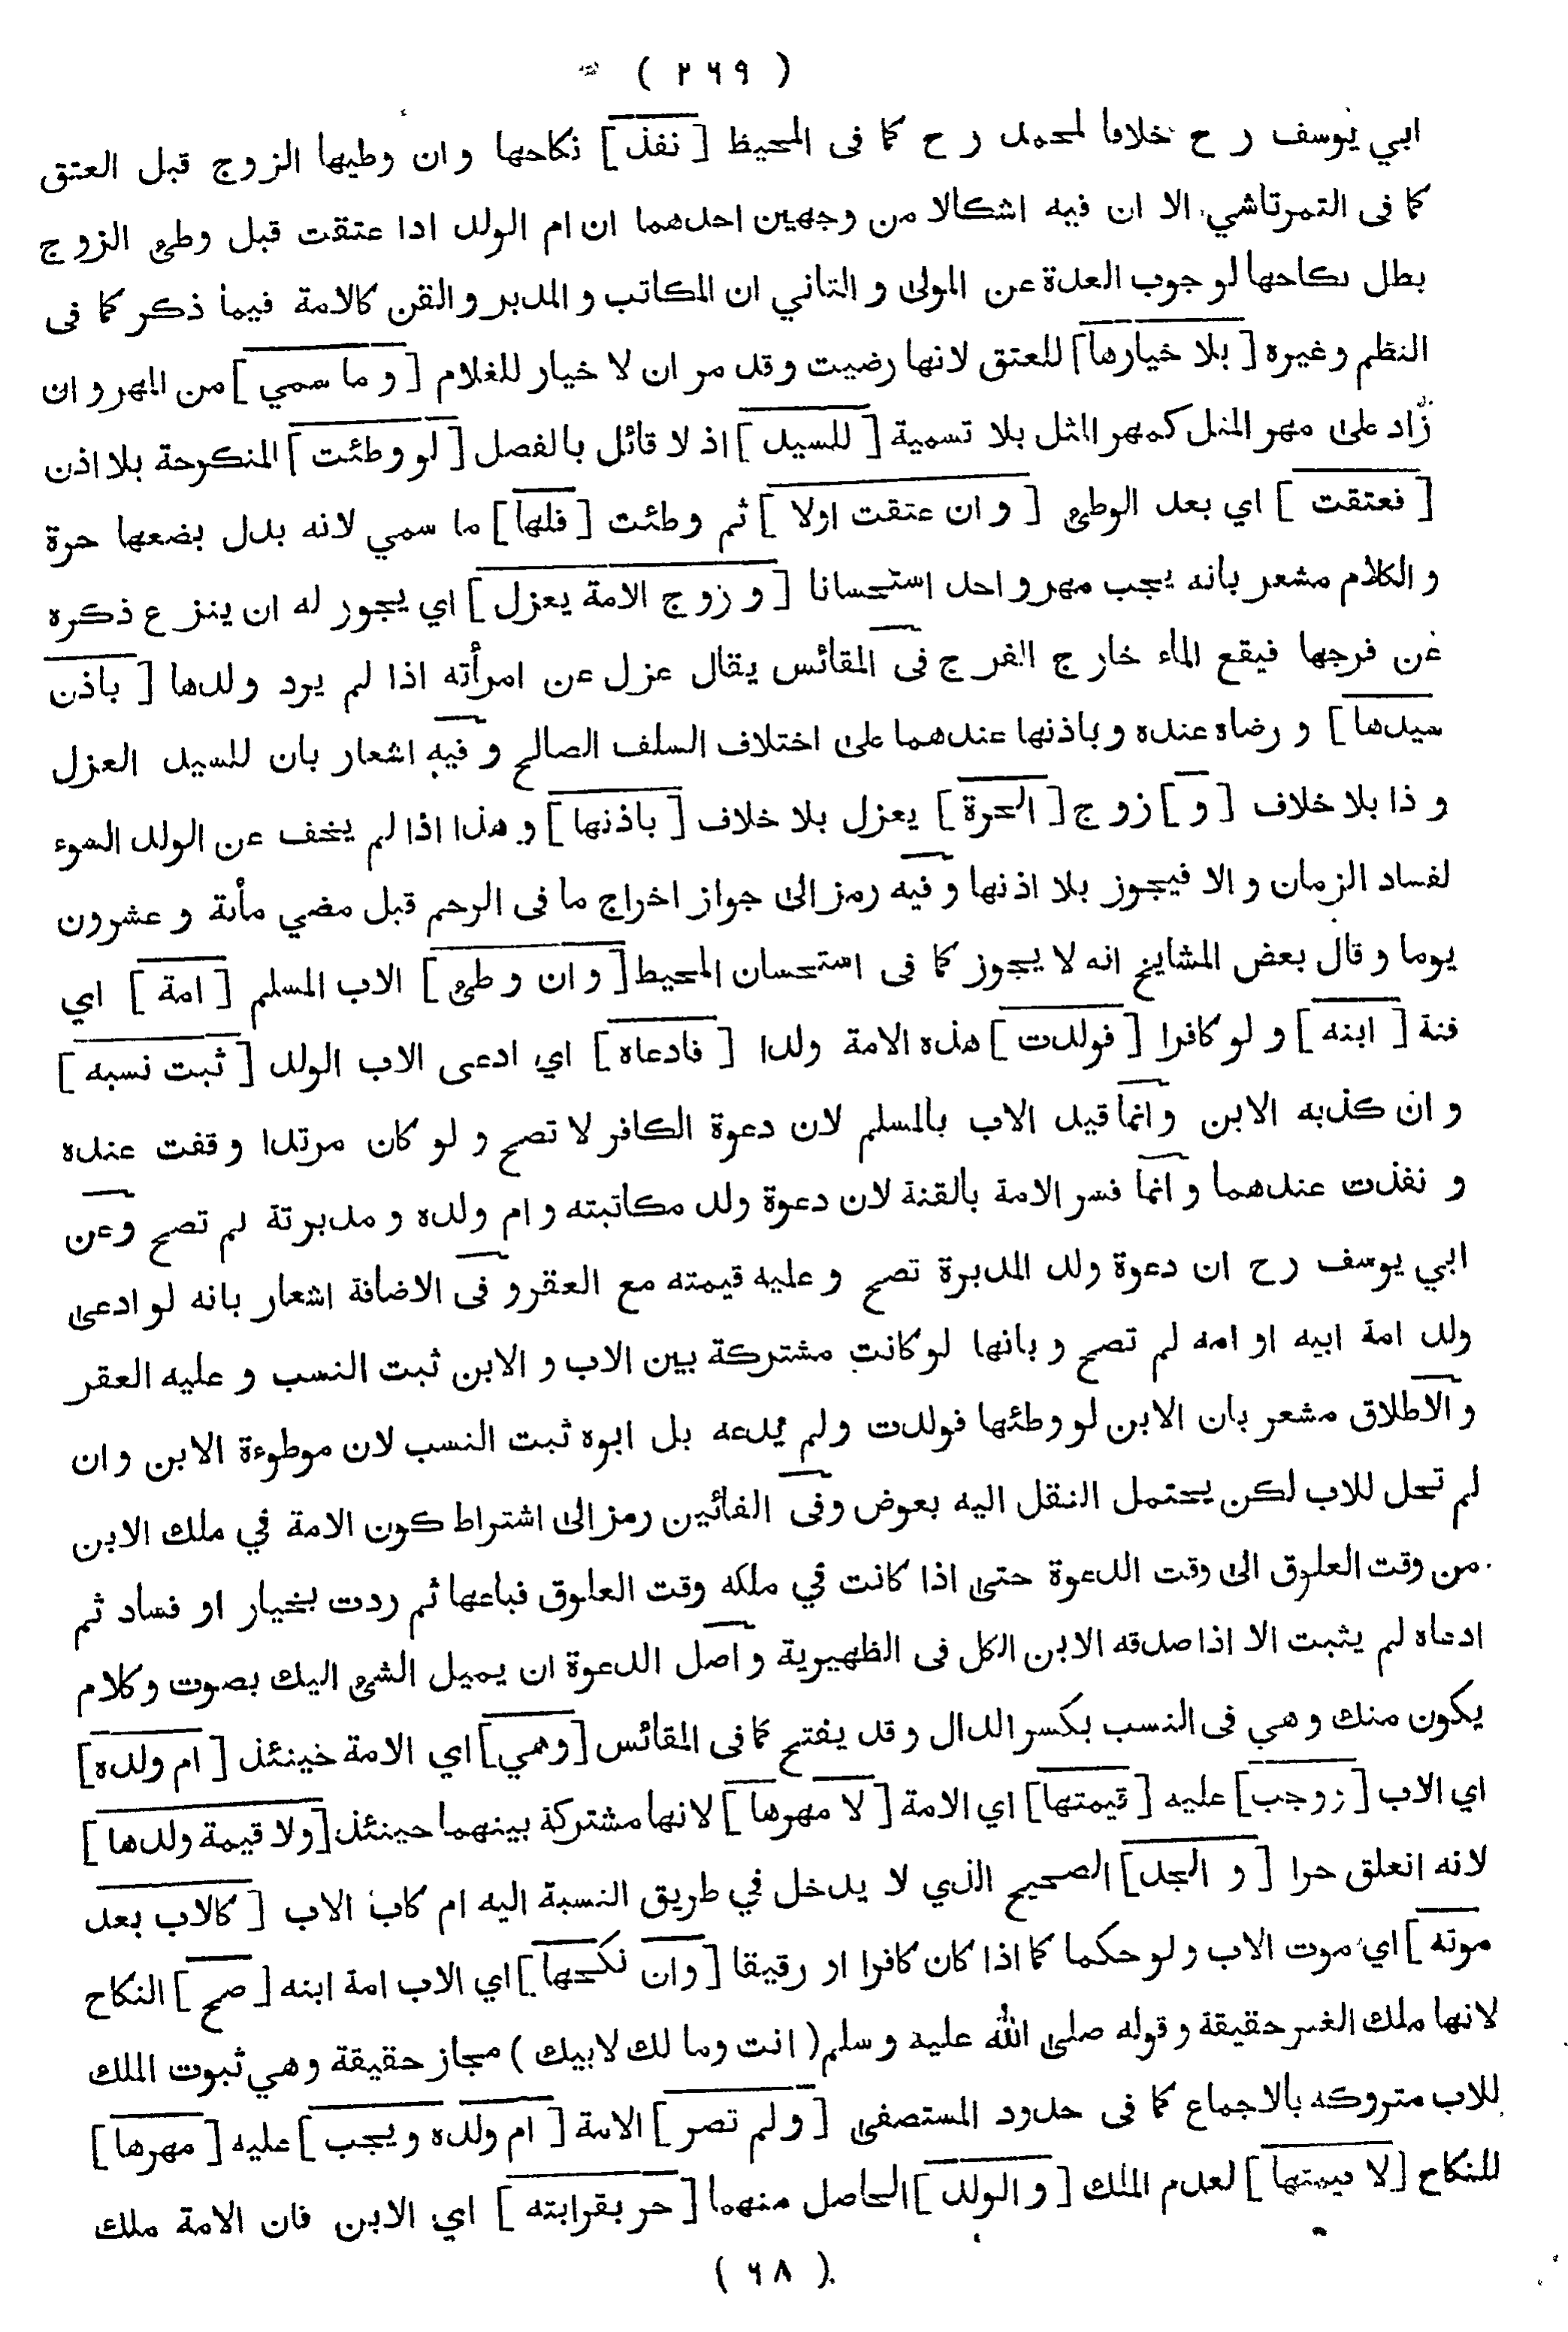 ( ٢٦٩ )
ابي يوسف ر ح خلافا لمحمد ر ح كما فى المحيط [ نفذ ] نكاحها و ان وطيها الزوج قبل العتق
كما فى التمرتاشي الا ان فيه اشكالا من وجهين احدهما ان ام الولد اذا عتقت قبل وطئ الزوج
بطل نكاحها لوجوب العدة عن المولى و الثاني ان المكاتب و المدبر و القن كالامة فيما ذكر كما فى
النظم وغيره [ بلا خيارها ] للعتق لانها رضيت و قد مر ان لا خيار للغلام [ و ما سمي ] من المهر و ان
زاد على مهر المثل كمهر المثل بلا تسمية [ للسيد ] اذ لا قائل بالفصل [ لو وطئت ] المنكوحة بلا اذن
[ فعتقت ] اي بعد الوطئ [ و ان عتقت اولا ] ثم وطئت [ فلها ] ما سمي لانه بدل بضعها حرة
و الكلام مشعر بانه يجب مهر واحد استحسانا [ و زوج الامة يعزل ] اي يجوز له ان ينزع ذكره
عن فرجها فيقع الماء خارج الفرج فى المقائس يقال عزل عن امرأته اذا لم يرد ولدها [ باذن
سيدها ] و رضاه عنده و باذنها عندهما على اختلاف السلف الصالح و فيه اشعار بان للسيد العزل
و ذا بلا خلاف [ و ] زوج [ الحرة ] يعزل بلا خلاف [ باذنها ] و هذا اذا لم يخف عن الولد السوء
لفساد الزمان و الا فيجوز بلا اذنها و فيه رمز الى جواز اخراج ما فى الرحم قبل مضي مأئة و عشرون
يوما و قال بعض المشايخ انه لا يجوز كما فى استحسان المحيط [ و ان وطئ ] الاب المسلم [ امة ] اي
قنة [ ابنه ] و لو كافرا [ فولدت ] هذه الامة ولدا [ فادعاه ] اي ادعى الاب الولد [ ثبت نسبه ]
و ان كذبه الابن و انما قيد الاب بالمسلم لان دعوة الكافر لا تصح و لو كان مرتدا وقفت عنده
و نفذت عندهما و انما فسر الامة بالقنة لان دعوة ولد مكاتبته و ام ولده و مدبرتة لم تصح و عن
ابي يوسف ر ح ان دعوة ولد المدبرة تصح و عليه قيمته مع العقر و فى الاضافة اشعار بانه لو ادعى
ولد امة ابيه او امه لم تصح و بانها لو كانت مشتركة بين الاب و الابن ثبت النسب و عليه العقر
و الاطلاق مشعر بان الابن لو وطئها فولدت و لم يدعه بل ابوه ثبت النسب لان موطوءة الابن و ان
لم تحل للاب لكن يحتمل النقل اليه بعوض و فى الفائين رمز الى اشتراط كون الامة في ملك الابن
من وقت العلوق الى وقت الدعوة حتى اذا كانت في ملكه وقت العلوق فباعها ثم ردت بخيار او فساد ثم
ادعاه لم يثبت الا اذا صدقه الابن الكل فى الظهيرية و اصل الدعوة ان يميل الشئ اليك بصوت و كلام
يكون منك و هي فى النسب بكسر الدال و قد يفتح كما فى المقائس [ وهي ] اي الامة خينئذ [ ام ولده ]
اي الاب [ زوجب ] عليه [ قيمتها ] اي الامة [ لا مهرها ] لانها مشتركة بينهما حينئذ [ ولا قيمة ولدها ]
لانه انعلق حرا [ و الجد ] الصحيح الذي لا يدخل في طريق النسبة اليه ام كاب الاب [ كالاب بعد
موته ] اي موت الاب و لو حكما كما اذا كان كافرا او رقيقا [ وان نكحها ] اي الاب امة ابنه [ صح ] النكاح
لانها ملك الغير حقيقة و قوله صلى الله عليه و سلم ( انت وما لك لابيك ) مجاز حقيقة و هي ثبوت الملك
للاب متروكه بالاجماع كما فى حدود المستصفى [ و لم تصر ] الامة [ ام ولده و يجب ] عليه [ مهرها ]
للنكاح [ لا قيمتها ] لعدم الملك [ و الولد ] الحاصل منهما [ حر بقرابته ] اي الابن فان الامة ملك
( ٦٨ )